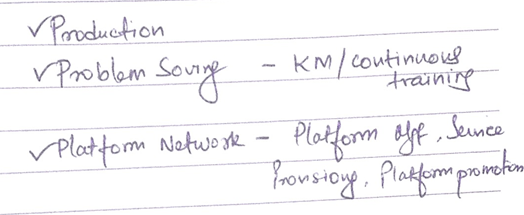 ✓Production
✓Problem Soving - KM/continuous
training
✓Platform Network - Platform off, Service
Provisiong, Platform promotion